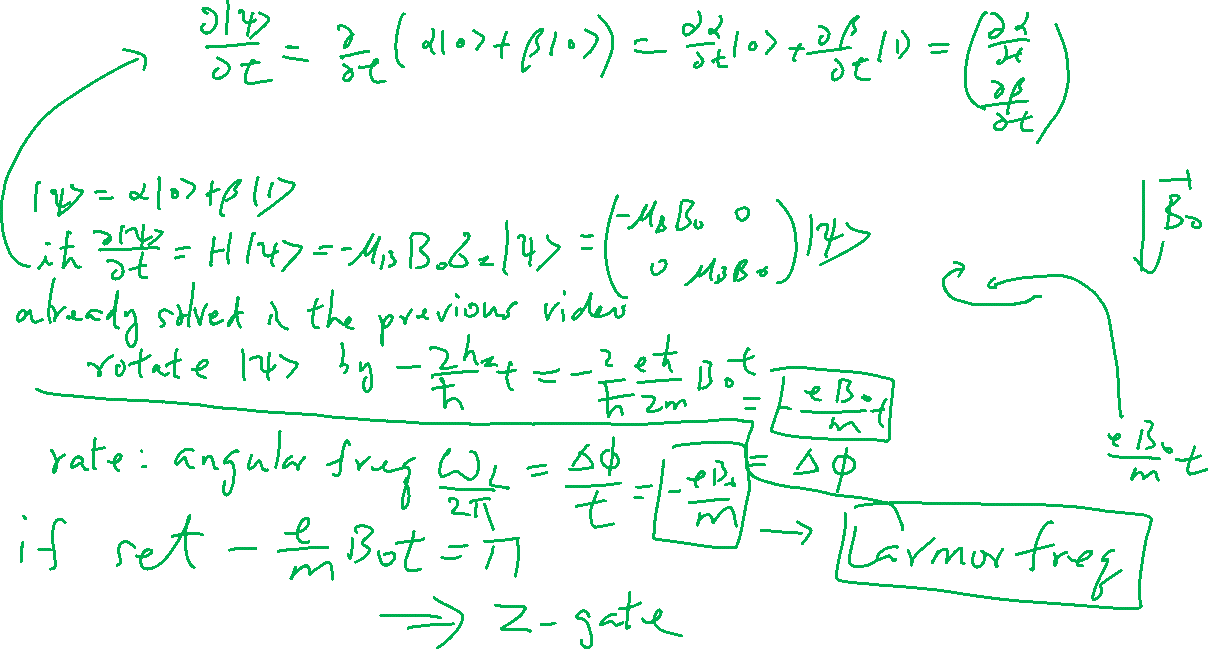 ∂|ψ>/∂t = ∂/∂t (α|0> + β|0>) = ∂α/∂t |0> + ∂β/∂t |1> = (∂α/∂t ∂β/∂t)
|ψ> = α|0> + β|1>
iħ ∂|ψ>/∂t = H|ψ> = -μ_B B₀ σ_z |ψ> = (-μ_B B₀ 0 0 μ_B B₀) |ψ>
B₀
already solved in the previous video
rotate |ψ> by - 2h_z/ħ t = - 2/ħ eħ/2m B₀ t = - eB₀/m t
eB₀/m t
rate: angular freq ω_L/2π = Δϕ/t = - eB₀/m = Δϕ
→ Larmor freq
if set - e/m B₀t = π
⇒ Z-gate